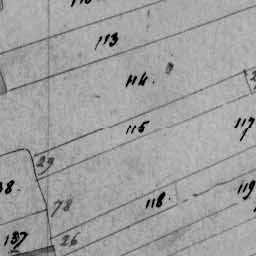 113
114.
115
117
29
118.
119
78
137
26